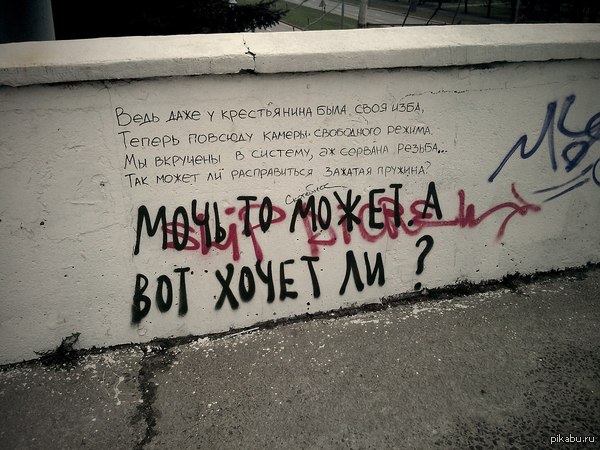 Ведь даже у крестьянина была своя изба,
Теперь повсюду камеры свободного режима.
Мы вкручены в систему, аж сорвана резьба...
Так может ли расправиться зажатая пружина?
МОЧЬ ТО МОЖЕТ. А
ВОТ ХОЧЕТ ЛИ ?
pikabu.ru